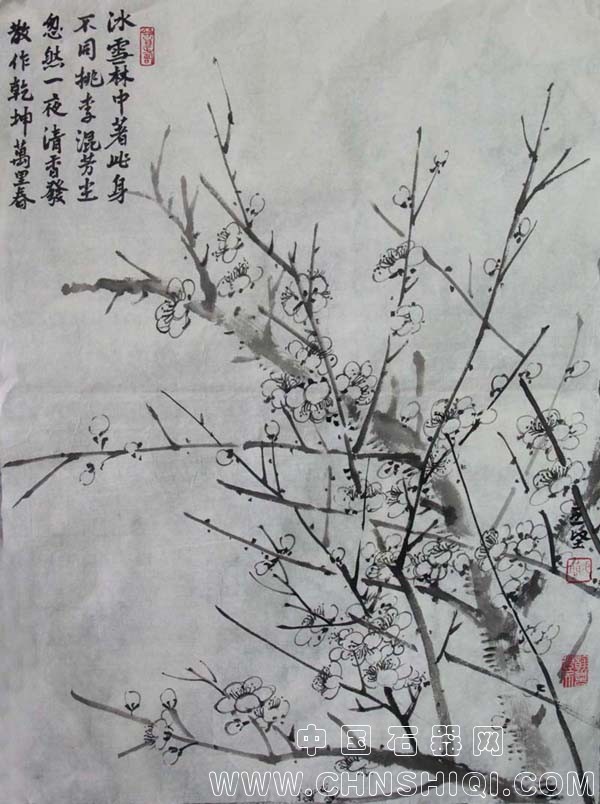 冰雪林中著此身
不同桃李混芳尘
忽然一夜清香發
散作乾坤萬里春
中国石器网
WWW.CHNSHIQI.COM